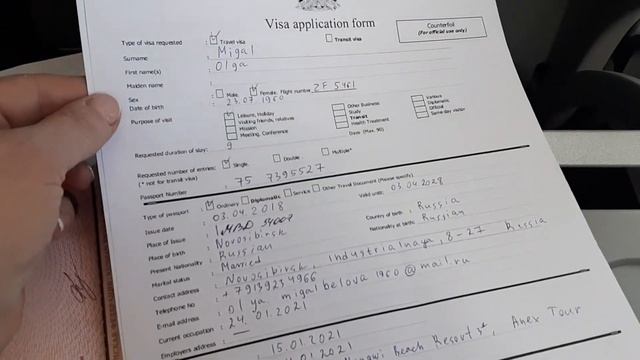 Visa application form
Counterfoil
(For official use only)
Type of visa requested : ☑ Travel visa ☐ Transit visa
Surname : Migal
First name(s) : Olga
Maiden name :
Sex : ☐ Male ☑ Female. Flight number ZF 5461
Date of birth : 23.07 1960
Purpose of visit : Leisure, Holiday ☐ Other Business ☐ Various
☐ Visiting friends, relatives ☐ Study ☐ Diplomatic
☐ Mission ☐ Transit ☐ Official
☐ Meeting, Conference ☐ Health Treatment ☐ Same-day visitor
Requested duration of stay: 9 Days (Max. 90)
Requested number of entries: ☑ Single ☐ Double ☐ Multiple*
(* not for transit visa)
Passport Number : 75 7395527
Type of passport : ☑ Ordinary ☐ Diplomatic ☐ Service ☐ Other Travel Document (Please specify)
Issue date : 03.04.2018 Valid until: 03.04.2028
Place of Issue :
Place of birth : Novosibirsk Country of birth : Russia
Present Nationality : Russian Nationality at birth: Russian
Marital status : Married
Contact address : Novosibirsk, Industrialnaya, 8-27 Russia
Telephone No : +79139234966
E-mail address : olya.migalbelova1960@mail.ru
Current occupation : 24.01.2021
Employers address : 15.01.2021
.01.2021
Beach Resort 3*, Anex Tour